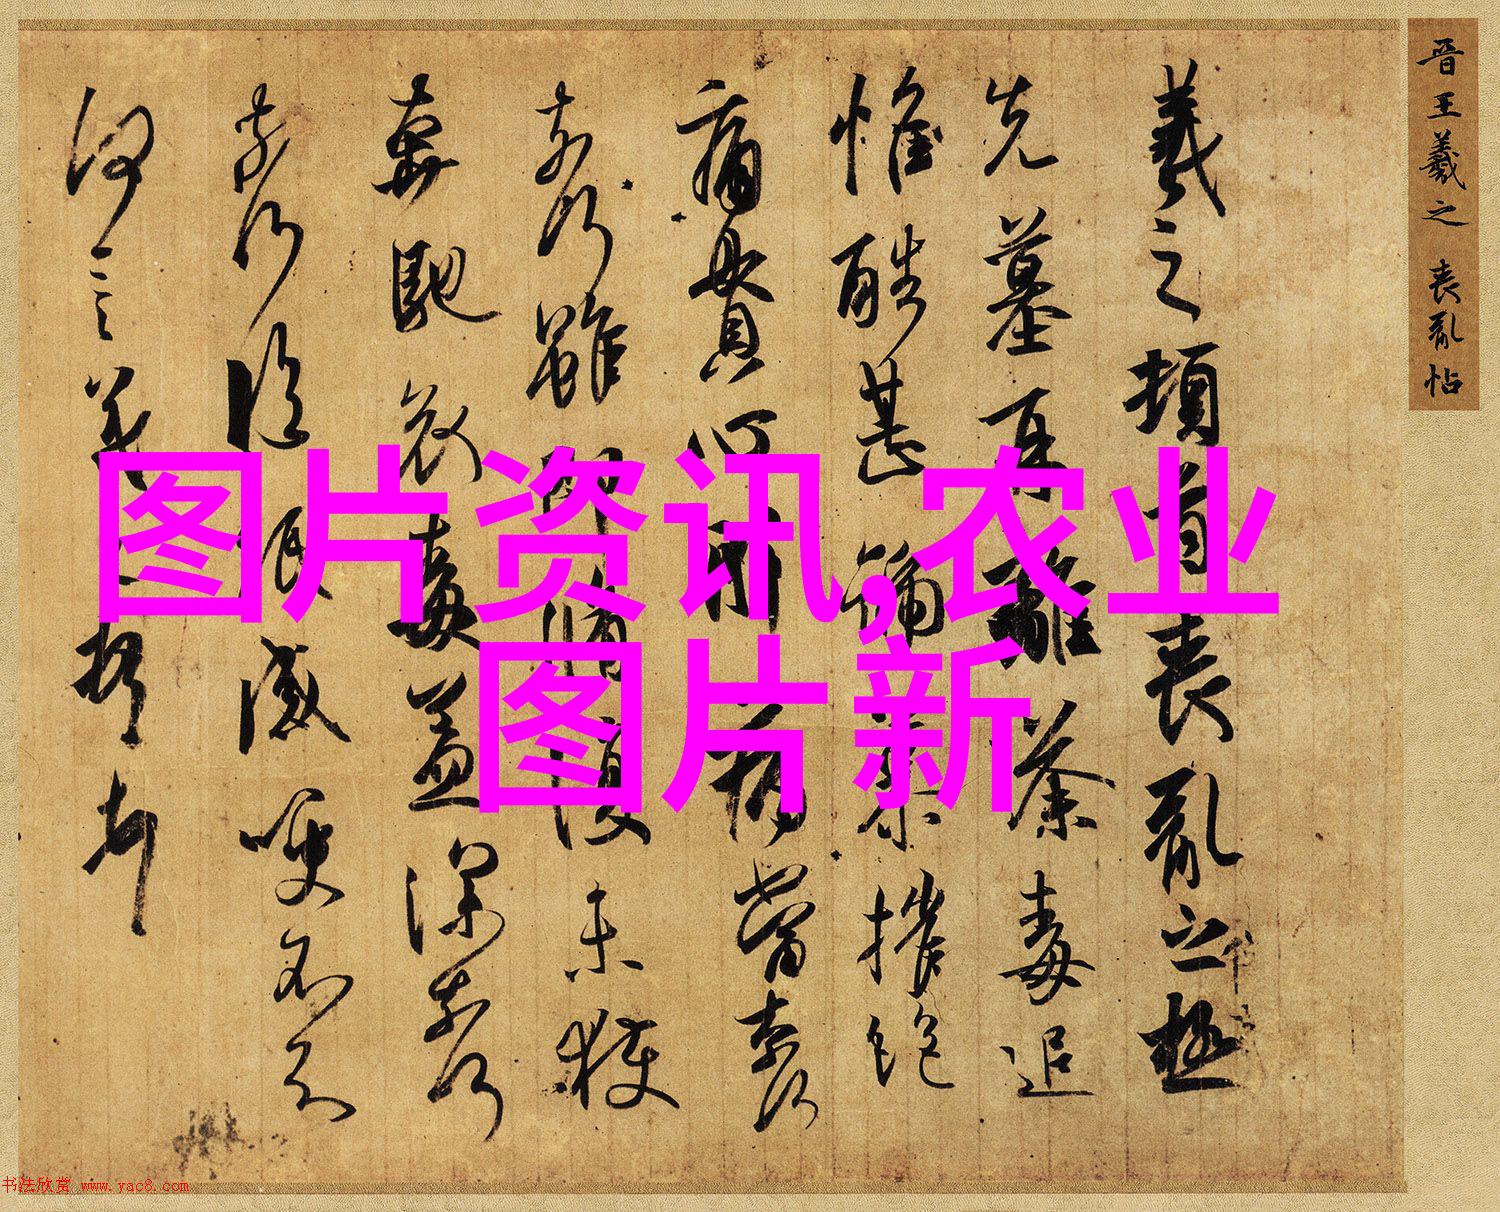 晋王羲之 喪亂帖
羲之頓首喪亂之極
先墓再離荼毒追
惟酷甚號慕摧絕
痛貫心肝痛當奈何
奈何雖即脩復未獲
奔馳哀毒益深奈何
奈何臨紙感哽不知
何言羲之頓首頓首
图片资讯,农业
图片新
书法欣赏 www.yac8.com